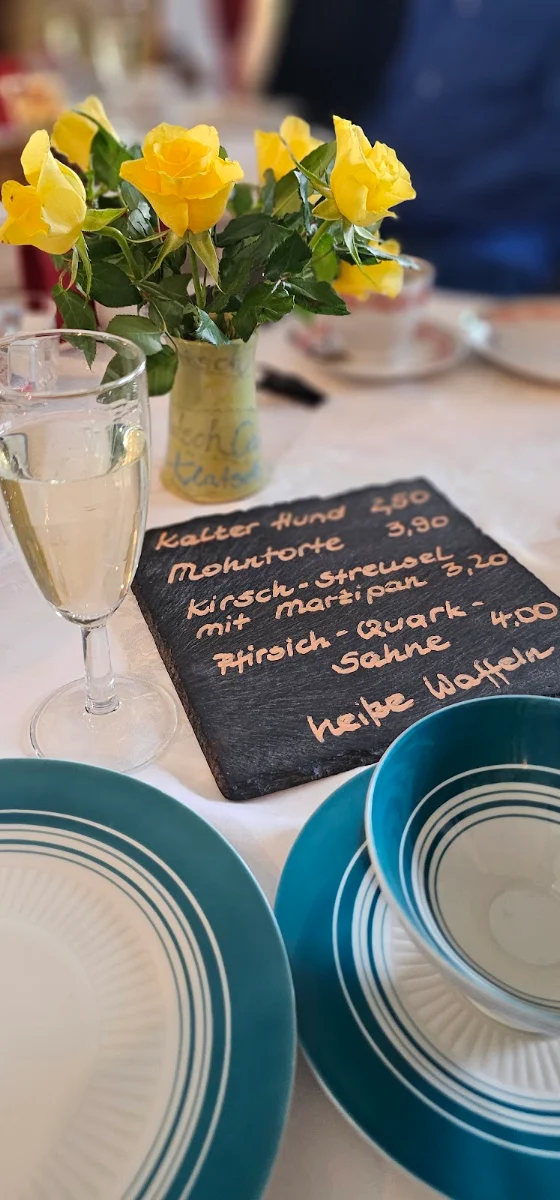 Kalter Hund 2,50
Mohntorte 3,90
Kirsch-Streusel
mit Marzipan 3,20
Pfirsich-Quark-
Sahne 4,00
heiße Waffeln